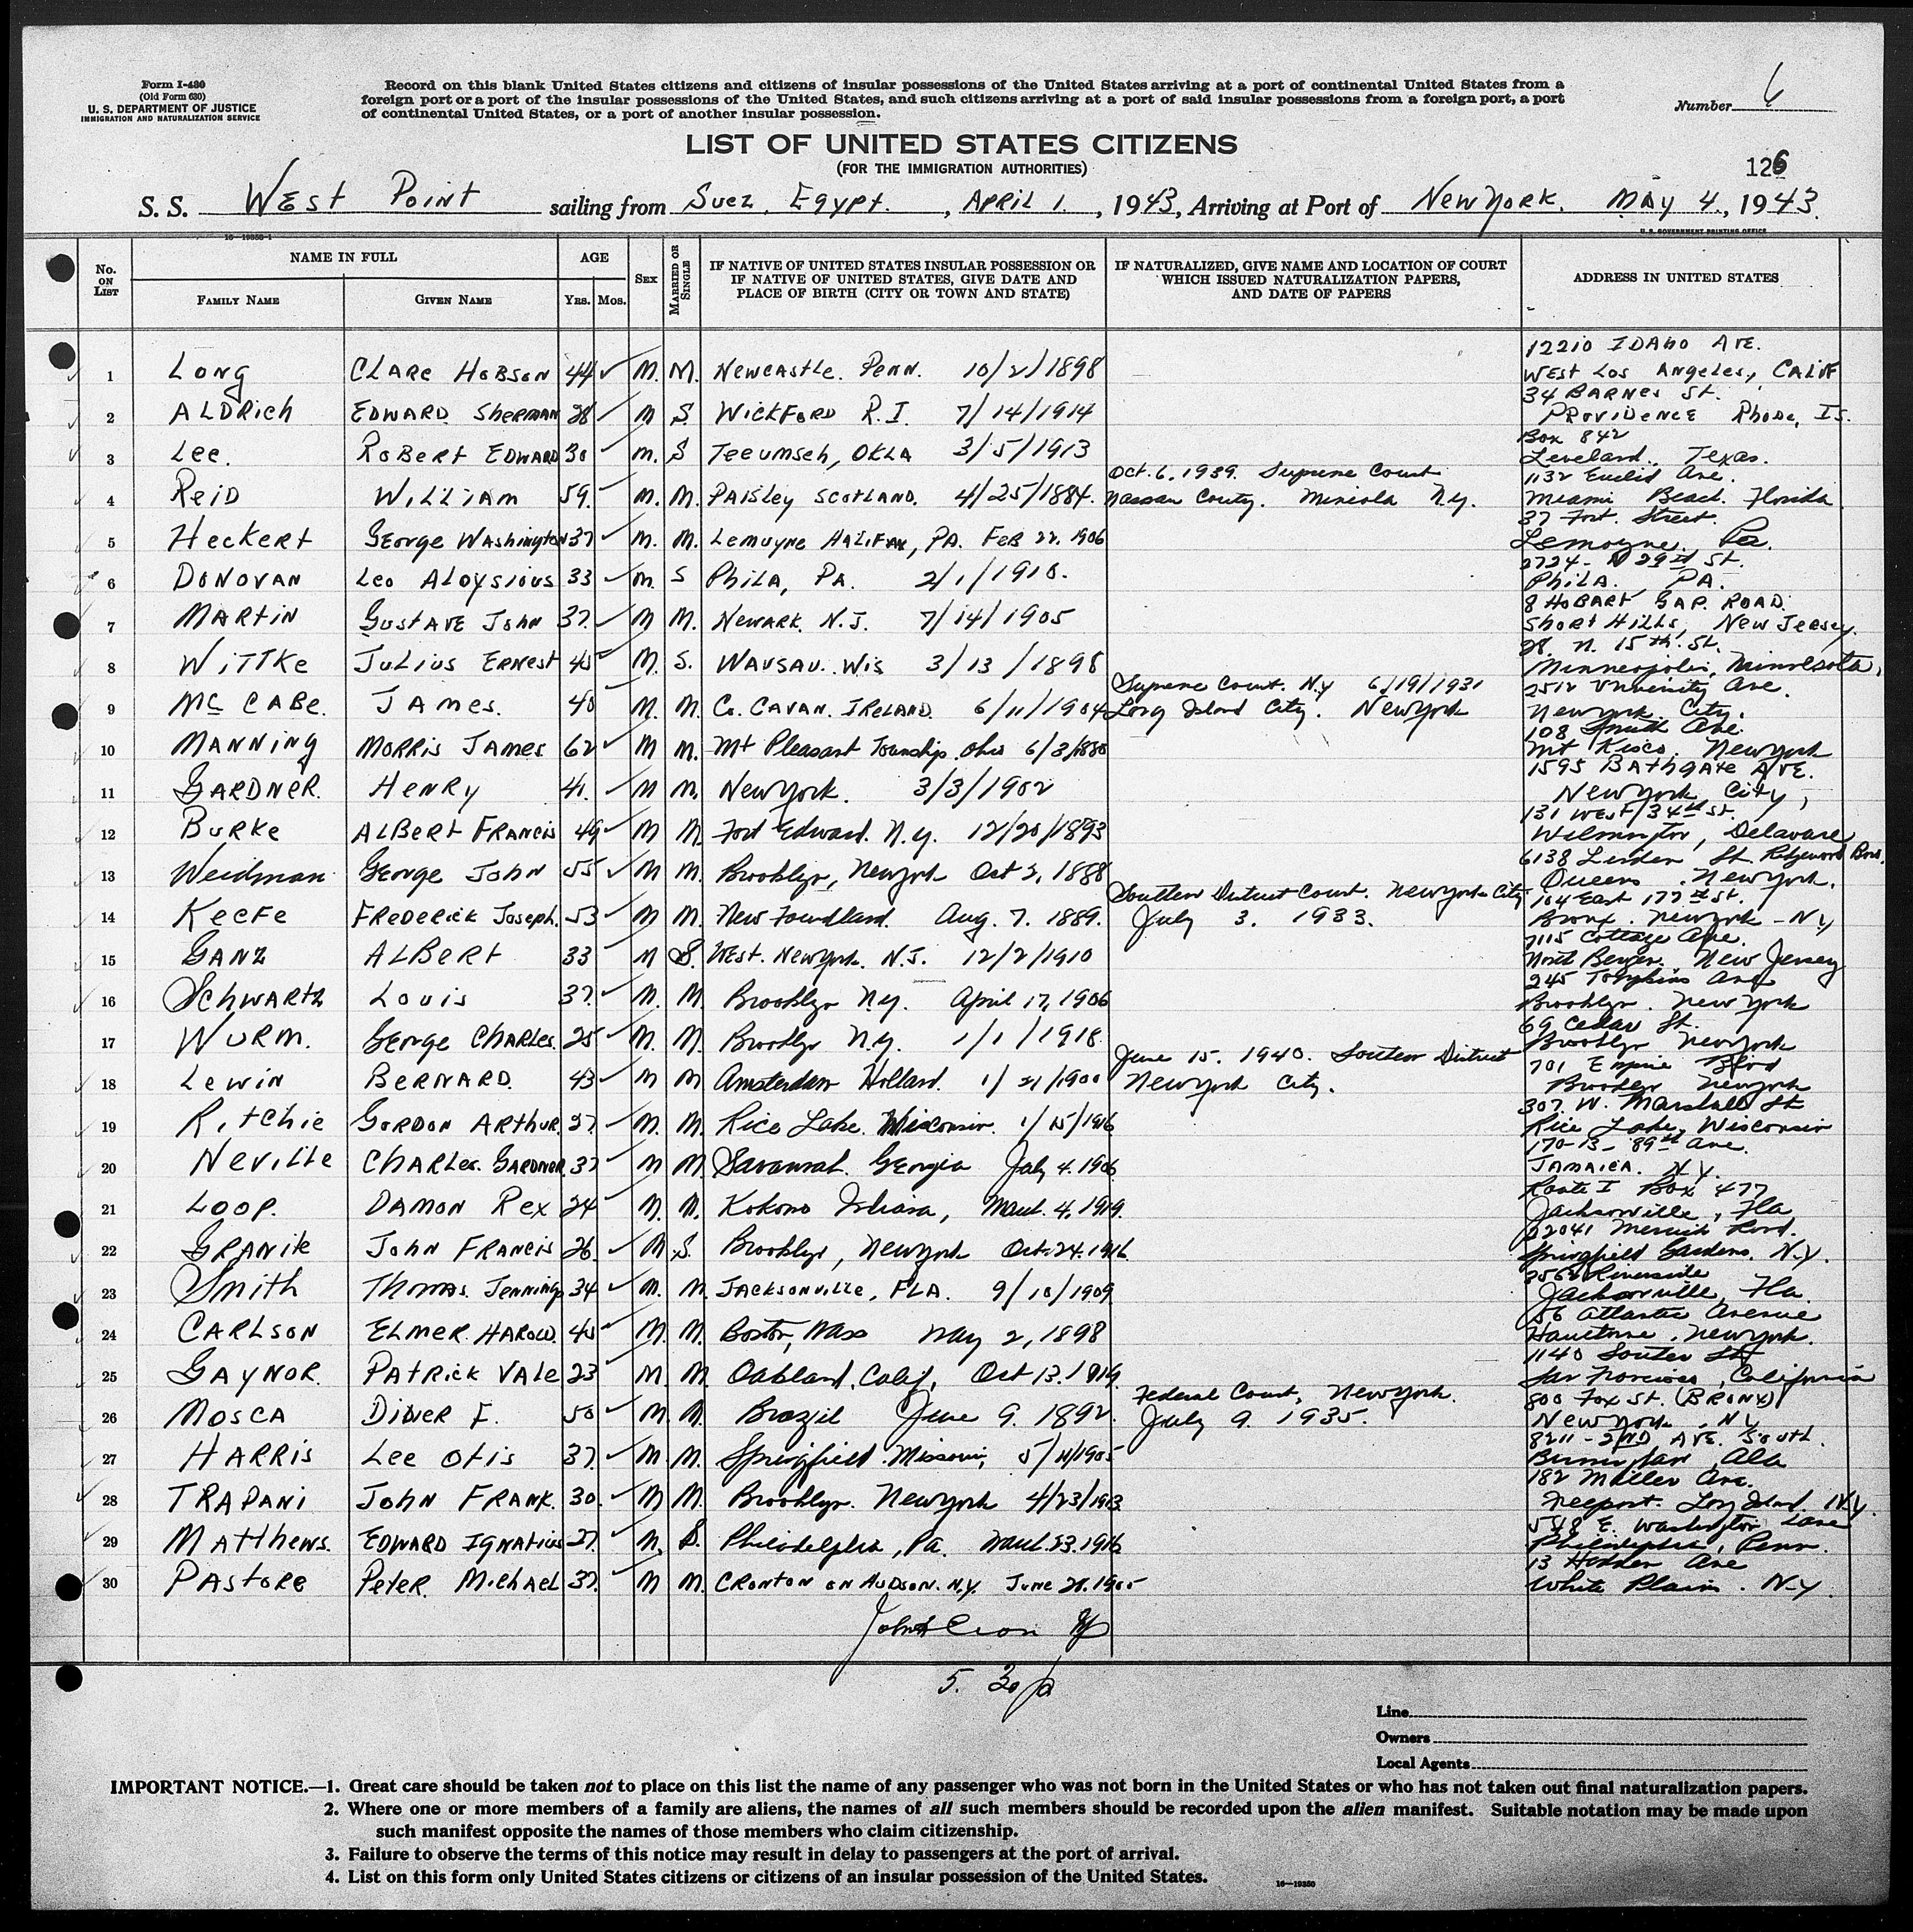 Form I-430
(Old Form 630)
U. S. DEPARTMENT OF JUSTICE
IMMIGRATION AND NATURALIZATION SERVICE
Record on this blank United States citizens and citizens of insular possessions of the United States arriving at a port of continental United States from a
foreign port or a port of the insular possessions of the United States, and such citizens arriving at a port of said insular possessions from a foreign port, a port
of continental United States, or a port of another insular possession.
Number 6
LIST OF UNITED STATES CITIZENS
(FOR THE IMMIGRATION AUTHORITIES)
126
S. S. West Point sailing from Suez, Egypt. , April 1. , 1943, Arriving at Port of New York. May 4., 1943.
16—19350-1
U. S. GOVERNMENT PRINTING OFFICE
No. on List NAME IN FULL Family Name Given Name AGE Yrs. Mos. Sex Married or Single IF NATIVE OF UNITED STATES INSULAR POSSESSION OR IF NATIVE OF UNITED STATES, GIVE DATE AND PLACE OF BIRTH (CITY OR TOWN AND STATE) IF NATURALIZED, GIVE NAME AND LOCATION OF COURT WHICH ISSUED NATURALIZATION PAPERS, AND DATE OF PAPERS ADDRESS IN UNITED STATES
12210 Idaho Ave.
1 Long Clare Hobson 44 M. M. Newcastle. Penn. 10/2/1898 West Los Angeles, Calif
34 Barnes St.
2 Aldrich Edward Sherman 28 M S. Wickford R.I. 7/14/1914 Providence Rhode, Is.
Box 842
3 Lee. Robert Edward 30 M. S Teeumseh, Okla 3/5/1913 Leveland, Texas.
Oct. 6, 1939. Supreme Court 1132 Euclid Ave.
4 Reid William 59. M. M. Paisley Scotland. 4/25/1884. Nassau County. Meniola N.y. Miami Beach. Florida
37 Fort. Street.
5 Heckert George Washington 37 M. M. Lemuyne Halifax, Pa. Feb 22. 1906 Lemoyne. Pa.
2724- N 29th St.
6 Donovan Leo Aloysious 33 M. S Phila, Pa. 2/1/1910. Phila. Pa.
8 Hobart Gap. Road.
7 Martin Gustave John 37. M M. Newark. N.J. 7/14/1905 Short Hills, New Jersey.
28. N. 15th. St.
8 Wittke Julius Ernest 45 M. S. Wausau. Wis 3/13/1898 Minneapolis, Minnesota,
Supreme Court. N.y 6/19/1931 2512 University Ave.
9 McCabe. James. 40 M. M. Co. Cavan. Ireland. 6/11/1904 Long Island City. New York New York City.
108 Smith Ave.
10 Manning Morris James 62 M M. Mt Pleasant Township, Ohio 6/3/1880 Mt Kisco. New York
1595 Bathgate Ave.
11 Gardner. Henry 41. M M. New York. 3/3/1902 New York City,
131 West/34th St.
12 Burke Albert Francis 49 M M. Fort Edward. N.y. 12/20/1893 Wilmington, Delaware
6138 Linden St. Ridgewood
13 Weidman George John 55 M M. Brooklyn, New York Oct 2, 1888 Queens. New York.
Southern District Court. New York City 104 East 177th St.
14 Keefe Frederick Joseph. 53 M M. New Foundland. Aug. 7. 1889. July 3. 1933. Bronx. New York - N.y
7115 Cottage Ave.
15 Ganz Albert 33 M S. West. New York. N.J. 12/2/1910 North Bergen. New Jersey
245 Tompkins Ave
16 Schwartz Louis 37. M. M. Brooklyn N.y. April 17, 1906 Brooklyn. New York
69 Cedar St.
17 Wurm. George Charles. 25 M. M. Brooklyn N.y. 1/1/1918. Brooklyn New York
June 15. 1940. Southern District 701 Empire Blvd
18 Lewin Bernard. 43 M M Amsterdam Holland. 1/21/1900 New York City. Brooklyn New York
307. W. Marshall St
19 Ritchie Gordon Arthur. 37. M. M. Rice Lake. Wisconsin. 1/15/1906 Rice Lake, Wisconsin
170-13- 89th Ave.
20 Neville Charles. Gardner 37 M M. Savannah. Georgia July 4. 1906 Jamaica. N.Y.
Route I Box 477
21 Loop. Damon Rex 24 M. M. Kokomo Indiana, March. 4. 1919. Jacksonville, Fla
22041 Merrick Road.
22 John Francis 26. M S. Brooklyn, New York Oct. 24. 1916 Springfield Gardens. N.Y.
2562 Riverside
23 Smith Thomas. Jennings 34 M. M. Jacksonville, Fla. 9/10/1909 Jacksonville, Fla.
56 Atlantic Avenue
24 Carlson Elmer. Harold. 45 M. M. Boston, Mass May 2, 1898 Hawthorne. New York.
1140 St
25 Gaynor. Patrick Vale 23 M. M. Oakland, Calif, Oct 13. 1919. San Francisco, California
Federal Court, New York. 800 Fox St. (Bronx)
26 Mosca F. 50 M. M. Brazil June 9. 1892. July 9. 1935. New York. N.Y
8211-2nd Ave. South.
27 Harris Lee Otis 37. M M. Springfield. Missouri, 5/11/1905 Birmingham, Ala
182 Miller Ave.
28 Trapani John Frank. 30. M M. Brooklyn. New York 4/23/1913 Freeport. Long Island. N.y.
518 E. Washington Lane
29 Matthews. Edward Ignatius 27. M. S. Philadelphia, Pa. March. 23. 1916 Philadelphia, Penn.
13 Ave
30 Pastore Peter. Michael 37. M M. Cronton on Hudson. N.y. June 28. 1905 White Plains. N-y
5. 30 p
Line
Owners
Local Agents
IMPORTANT NOTICE.—1. Great care should be taken not to place on this list the name of any passenger who was not born in the United States or who has not taken out final naturalization papers.
2. Where one or more members of a family are aliens, the names of all such members should be recorded upon the alien manifest. Suitable notation may be made upon
such manifest opposite the names of those members who claim citizenship.
3. Failure to observe the terms of this notice may result in delay to passengers at the port of arrival.
4. List on this form only United States citizens or citizens of an insular possession of the United States.
16—19350